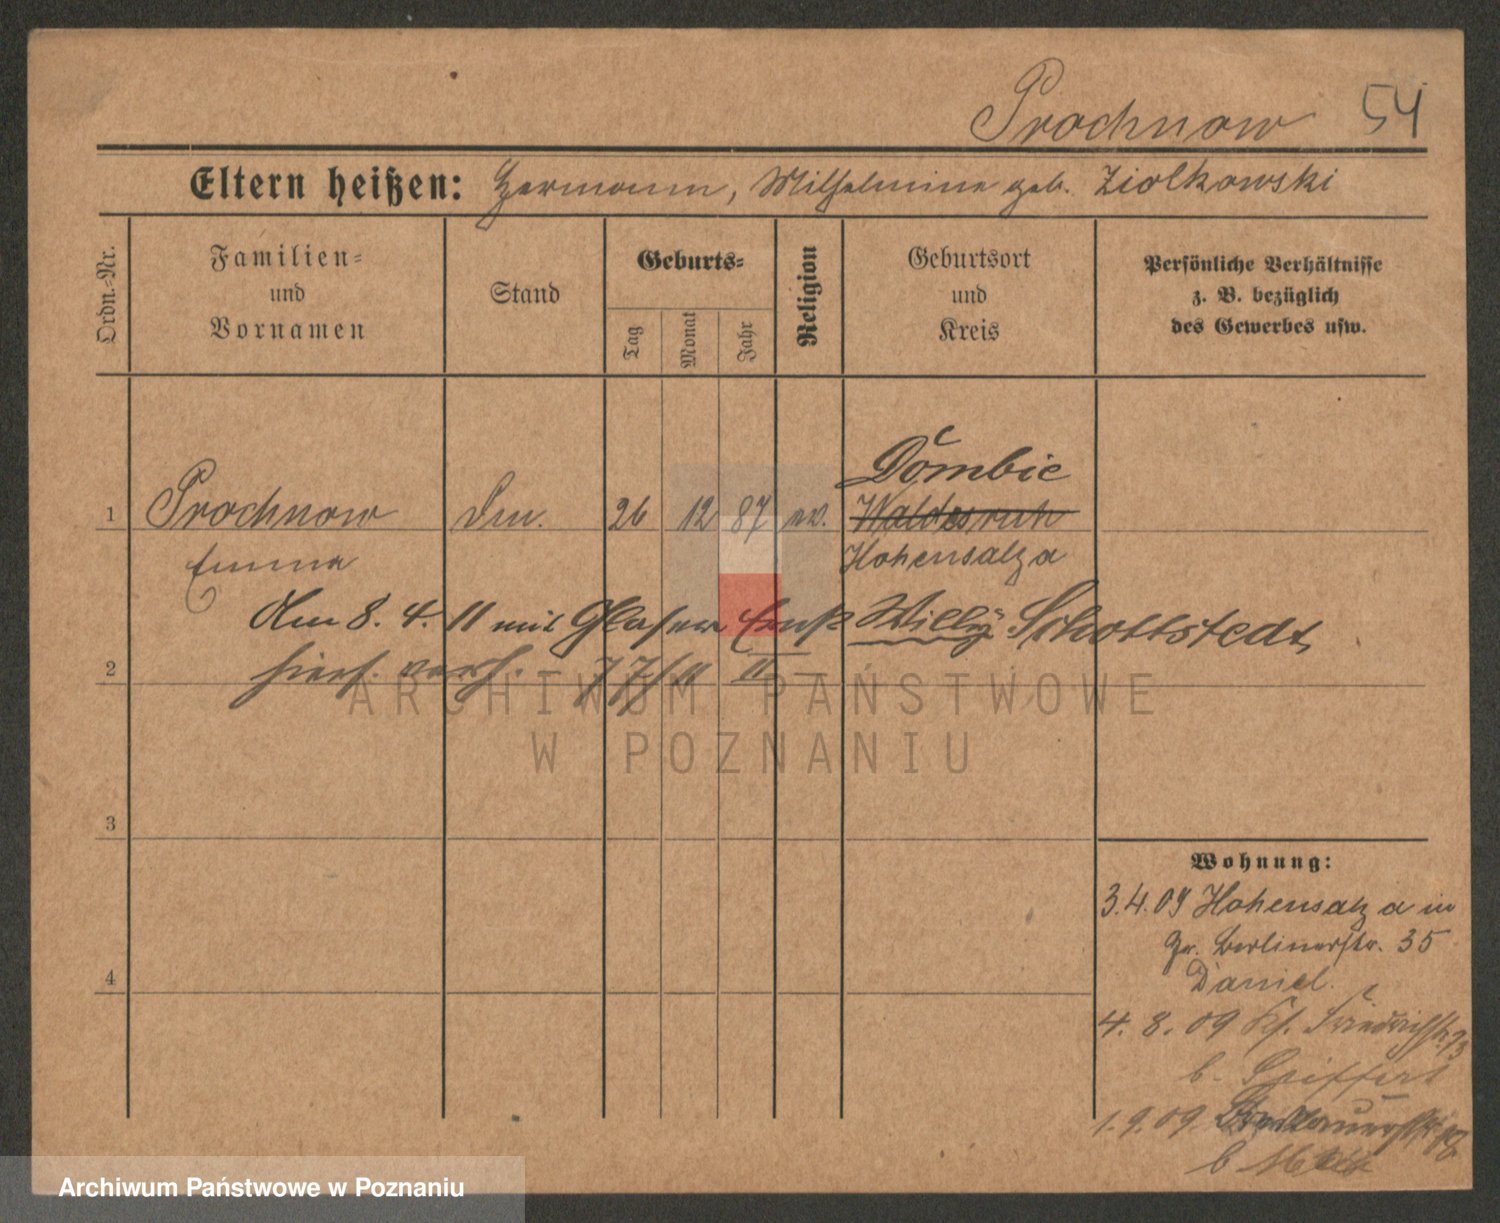 Prochnow 54
Eltern heißen: Hermann, Wilhelmine geb. Ziolkowski
Ordn.-Nr.
Familien-
und
Vornamen
Stand
Geburts-
Tag
Monat
Jahr
Religion
Geburtsort
und
Kreis
Persönliche Verhältnisse
z. B. bezüglich
des Gewerbes usw.
Dombie
1 Prochnow 26 12 87 ev. Waldesruh
Emma Hohensalza
Am 8. 4. 11 mit Glaser Ernst Willy Schottstedt
2 hier verh. 77/11 II
ARCHIWUM PAŃSTWOWE
W POZNANIU
3
Wohnung:
3.4.09 Hohensalza in
Gr. Berlinerstr. 35
Daniel.
4
4. 8. 09 Friedrichstr. 73
b.
1. 9. 09
b
Archiwum Państwowe w Poznaniu